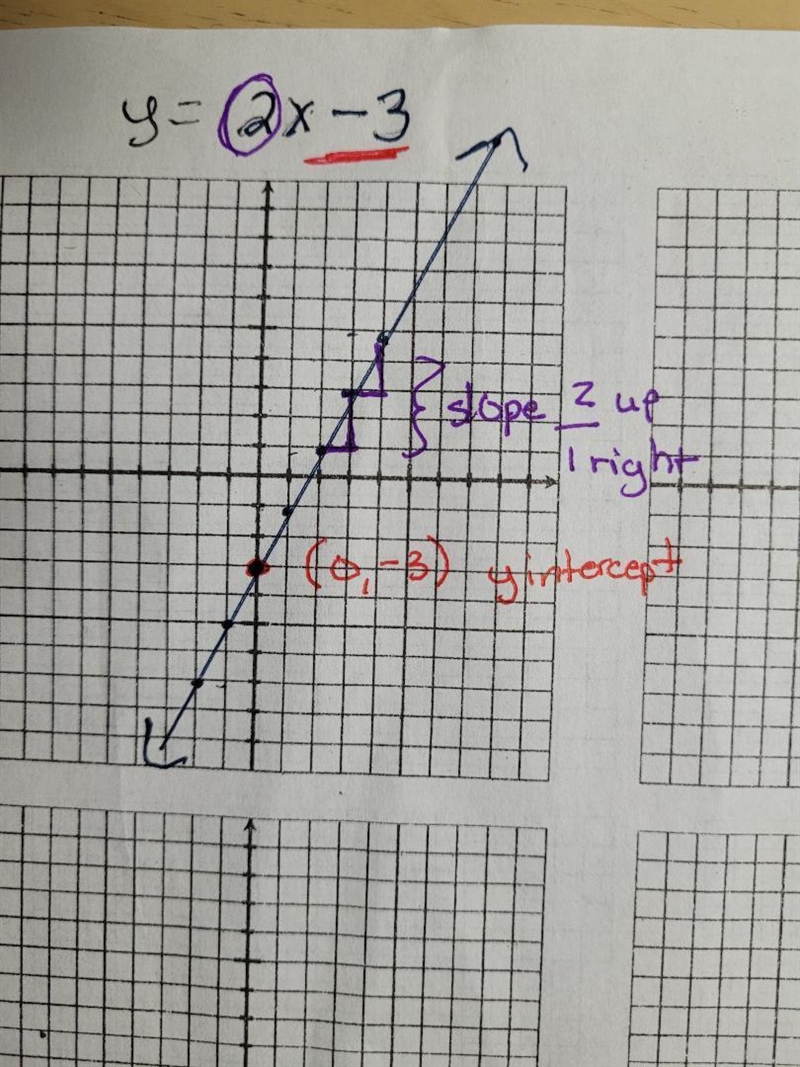 y = 2x - 3
slope 2 up
1 right
(0, -3) y intercept